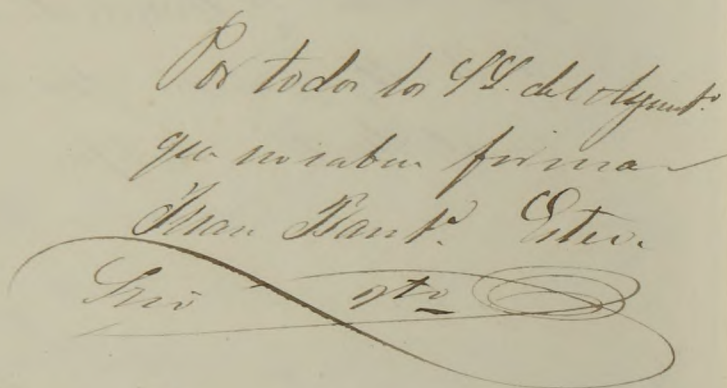 Por todos los SS. del Ayunto.
que no saben firmar
Juan Baut. Estev.
Srio